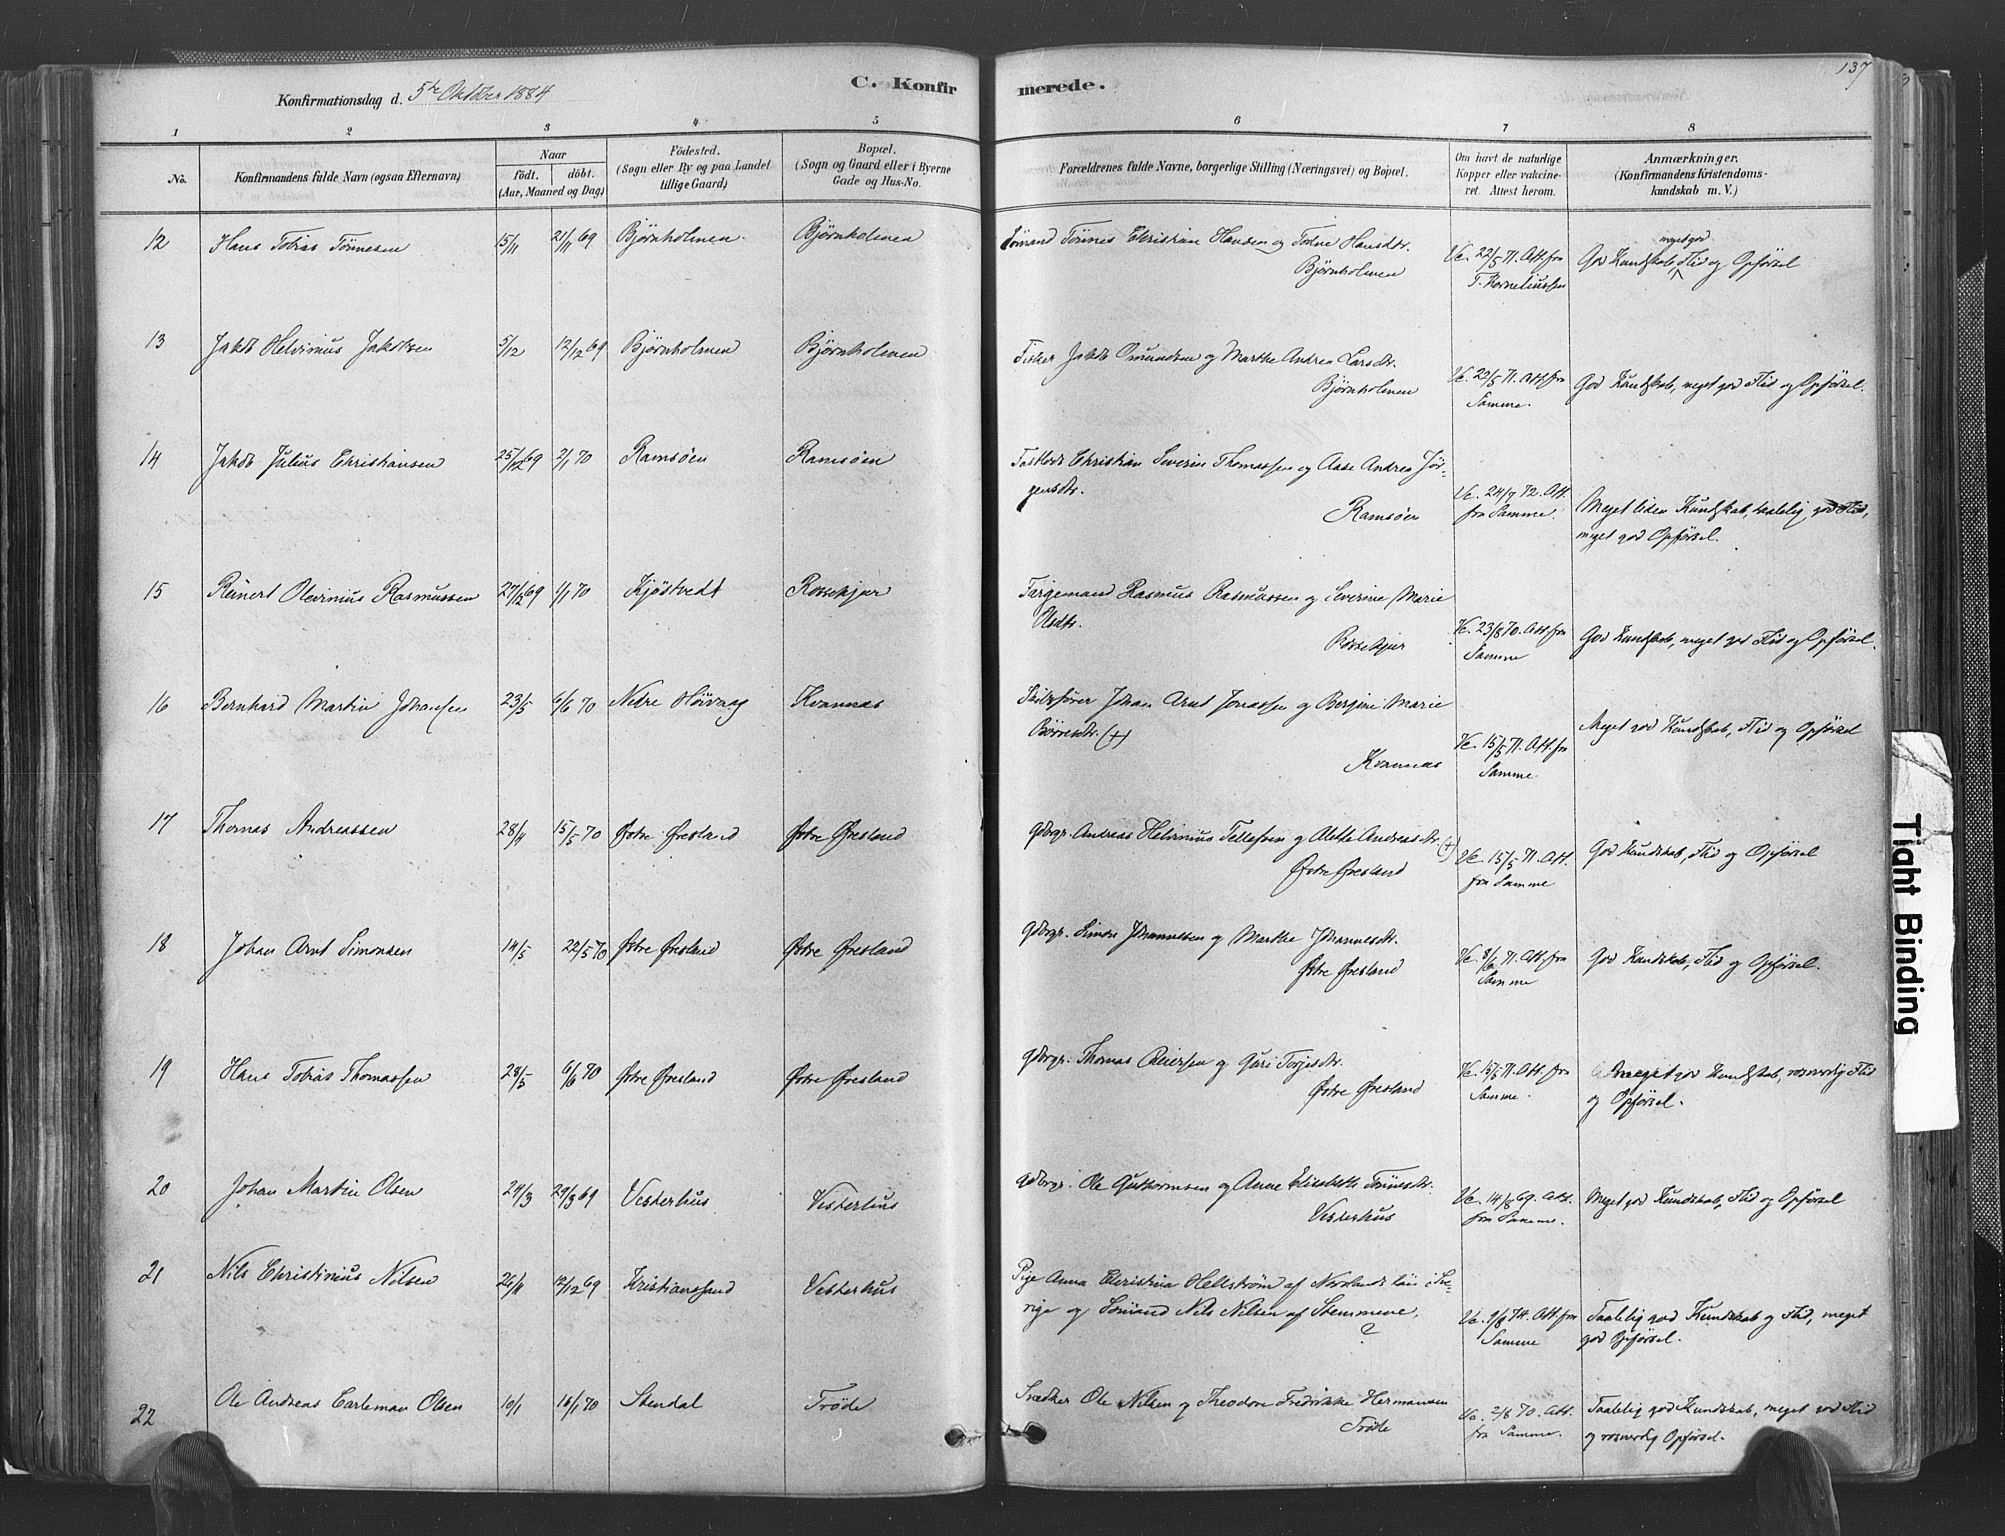 137
Konfirmationsdag d. 5te Oktober 1884
C. Konfirmerede.
1 2 3 4 5 6 7 8
No.
Konfirmandens fulde Navn (ogsaa Efternavn).
Naar
født. døbt.
(Aar, Maaned og Dag)
Födested.
(Sogn eller By og paa Landet
tillige Gaard)
Bopæl.
(Sogn og Gaard eller i Byerne
Gade og Hus-No.
Forældrenes fulde Navne, borgerlige Stilling (Næringsvei) og Bopæl.
Om havt de naturlige
Kopper eller vakcine-
ret. Attest herom.
Anmærkninger.
(Konfirmandens Kristendoms-
kundskab m. V.)
12 Hans Tobias Tönnesen 15/11 21/11 69 Bjørnholmen Bjørnholmen
Sømand Tönnes Christian Hansen og Hansdtr.
Bjørnholmen
Vc. 22/5 71. Att. fra
T. Korneliussen
meget god
God Kundskab, Flid og Opførsel
13 Jakob Helvinius Jakobsen 5/12 12/12 69 Bjørnholmen Bjørnholmen
Fisker Jakob Omundsen og Marthe Andrea Larsdtr.
Bjørnholmen
Vc. 22/5 71. Att. fra
Samme.
God Kundskab, meget god Flid og Opførsel.
14 Jakob Julius Christiansen 25/12 69 2/1 70 Ramsöen Ramsöen
Christian Severin Thomassen og Aase Andrea Jör-
gensdtr.
Ramsöen
Vc. 24/9 72. Att.
fra Samme.
Meget liden Kundskab, taalelig god Flid,
meget god Opførsel.
15 Reinert Olevinius Rasmussen 27/12 69 1/1 70 Kjöstvedt Rossekjær
Færgemand Rasmus Rasmussen og Severine Marie
Olsdtr.
Rossekjær
Vc. 23/8 70. Att. fra
Samme
God Kundskab, meget god Flid og Opførsel.
16 Bernhard Martin Johansen 23/5 6/6 70 Nedre Höivaag Kvannas
Skibsfører Johan Arnt Jonassen og Bergine Marie
Börresdtr. (+)
Kvannas
Vc. 15/5 71. Att. fra
Samme.
Meget god Kundskab, Flid og Opførsel
17 Thomas Andreassen 28/4 15/5 70 Østre Øresland Østre Øresland
Gdbrgr. Andreas Helvinius Tellefsen og Alette Andreasdtr. (+)
Østre Øresland
Vc. 15/5 71. Att.
fra Samme
God Kundskab, Flid og Opførsel
18 Johan Arnt Simonsen 14/5 22/5 70 Østre Øresland Østre Øresland
Gdbrgr. Simon Johannesen og Marthe Johannesdtr.
Østre Øresland
Vc. 8/6 71. Att. fra
Samme
God Kundskab, Flid og Opførsel.
19 Hans Tobias Thomassen 28/5 6/6 70 Østre Øresland Østre Øresland
Gdbrgr. Thomas Reiersen og Guri Torjusdtr.
Østre Øresland
Vc. 15/5 71. Att. fra
Samme.
meget god Kundskab, rosverdig Flid
og Opførsel.
20 Johan Martin Olsen 24/3 29/3 69 Vesterhus Vesterhus
Gdbrgr. Ole Guttormsen og Anne Elisabeth Tönnesdtr.
Vesterhus
Vc. 14/8 69. Att.
fra Samme.
Meget god Kundskab, Flid og Opførsel
21 Nils Christinius Nilsen 26/11 12/12 69 Kristianssand Vesterhus
Pige Anna Christina Hellström af Norrlands län i Sve-
rige og Sömand Nils Nilsen af Stemmene.
?
Vc. 1/8 74. Att. fra
Samme
Taalelig god Kundskab og Flid, meget
god Opførsel.
22 Ole Andreas Carleman Olsen 10/1 16/1 70 Stendal Tröde
Snedker Ole Nilsen og Theodore Fredrikke Hermansen
Tröde
Vc. 2/8 70. Att.
fra Samme.
Taalelig god Kundskab, meget god Flid
og rosverdig Opførsel.
Tight Binding